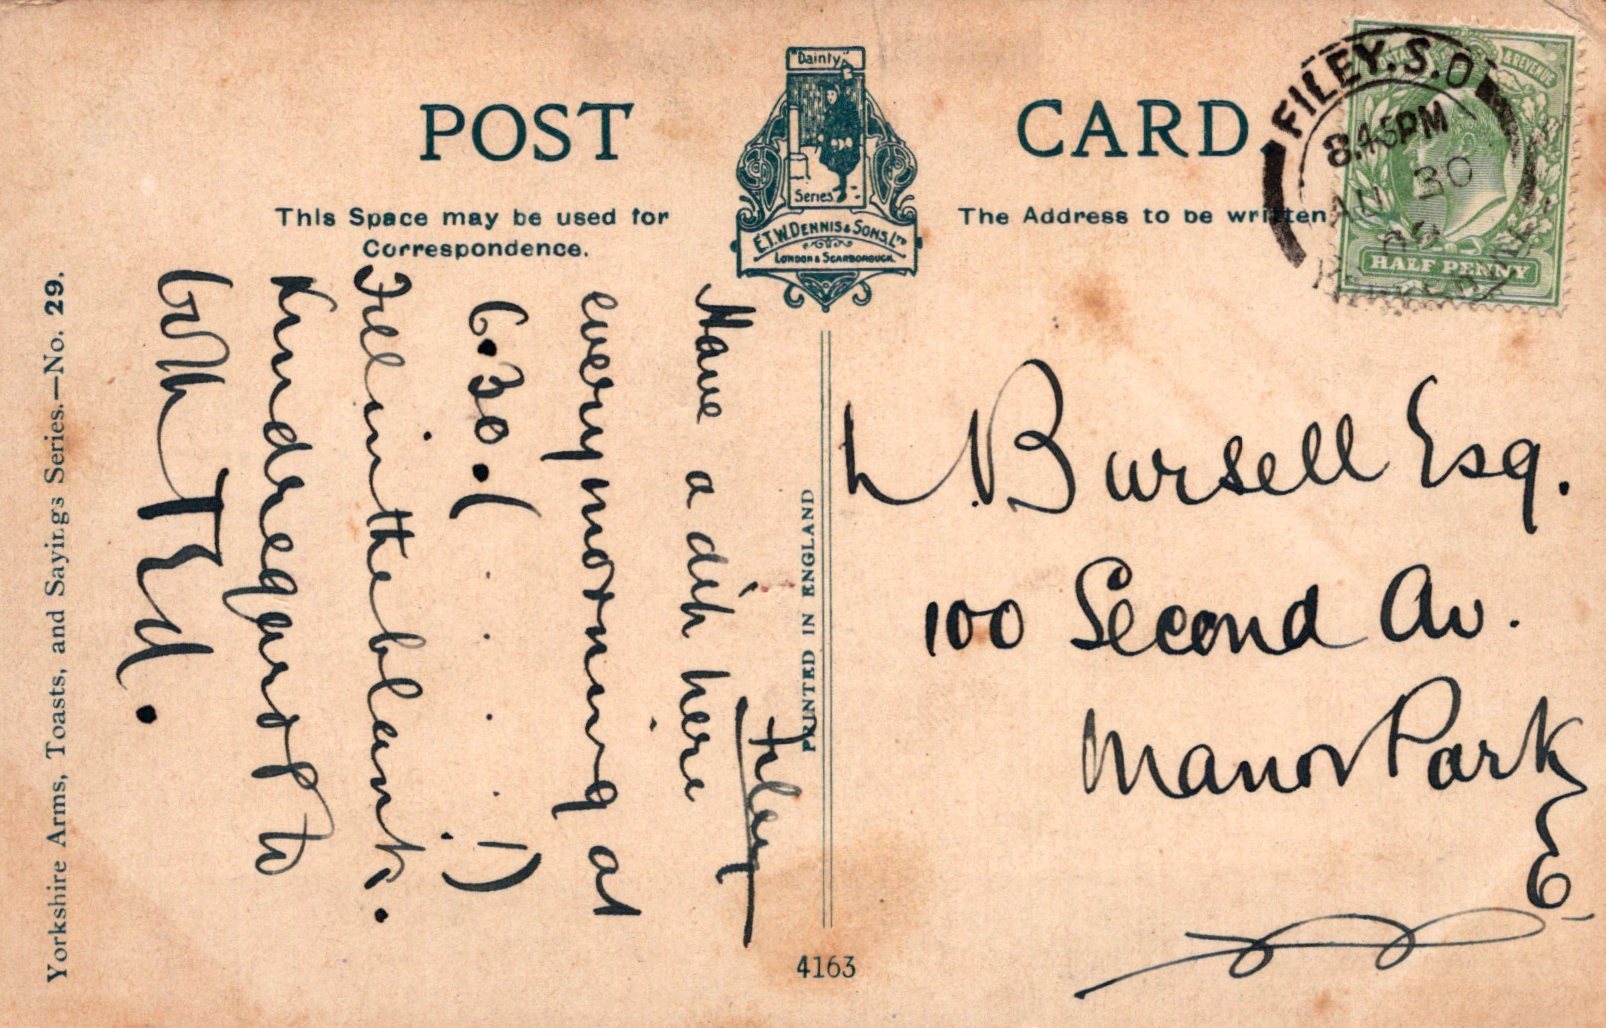 POST CARD
"Dainty"
Series
E.T.W. DENNIS & SONS, LTD
LONDON & SCARBOROUGH.
This Space may be used for
Correspondence.
The Address to be written
FILEY. S.O
8.45PM
AU 30
09
& REVENUE
HALF PENNY
Filey
Have a dip here
every morning at
6.30. (
. . . !)
Fill in the blank.
Kind regards to
both
Ted.
L. Bursell Esq.
100 Second Av.
Manor Park
E
PRINTED IN ENGLAND
4163
Yorkshire Arms, Toasts, and Sayings Series.—No. 29.